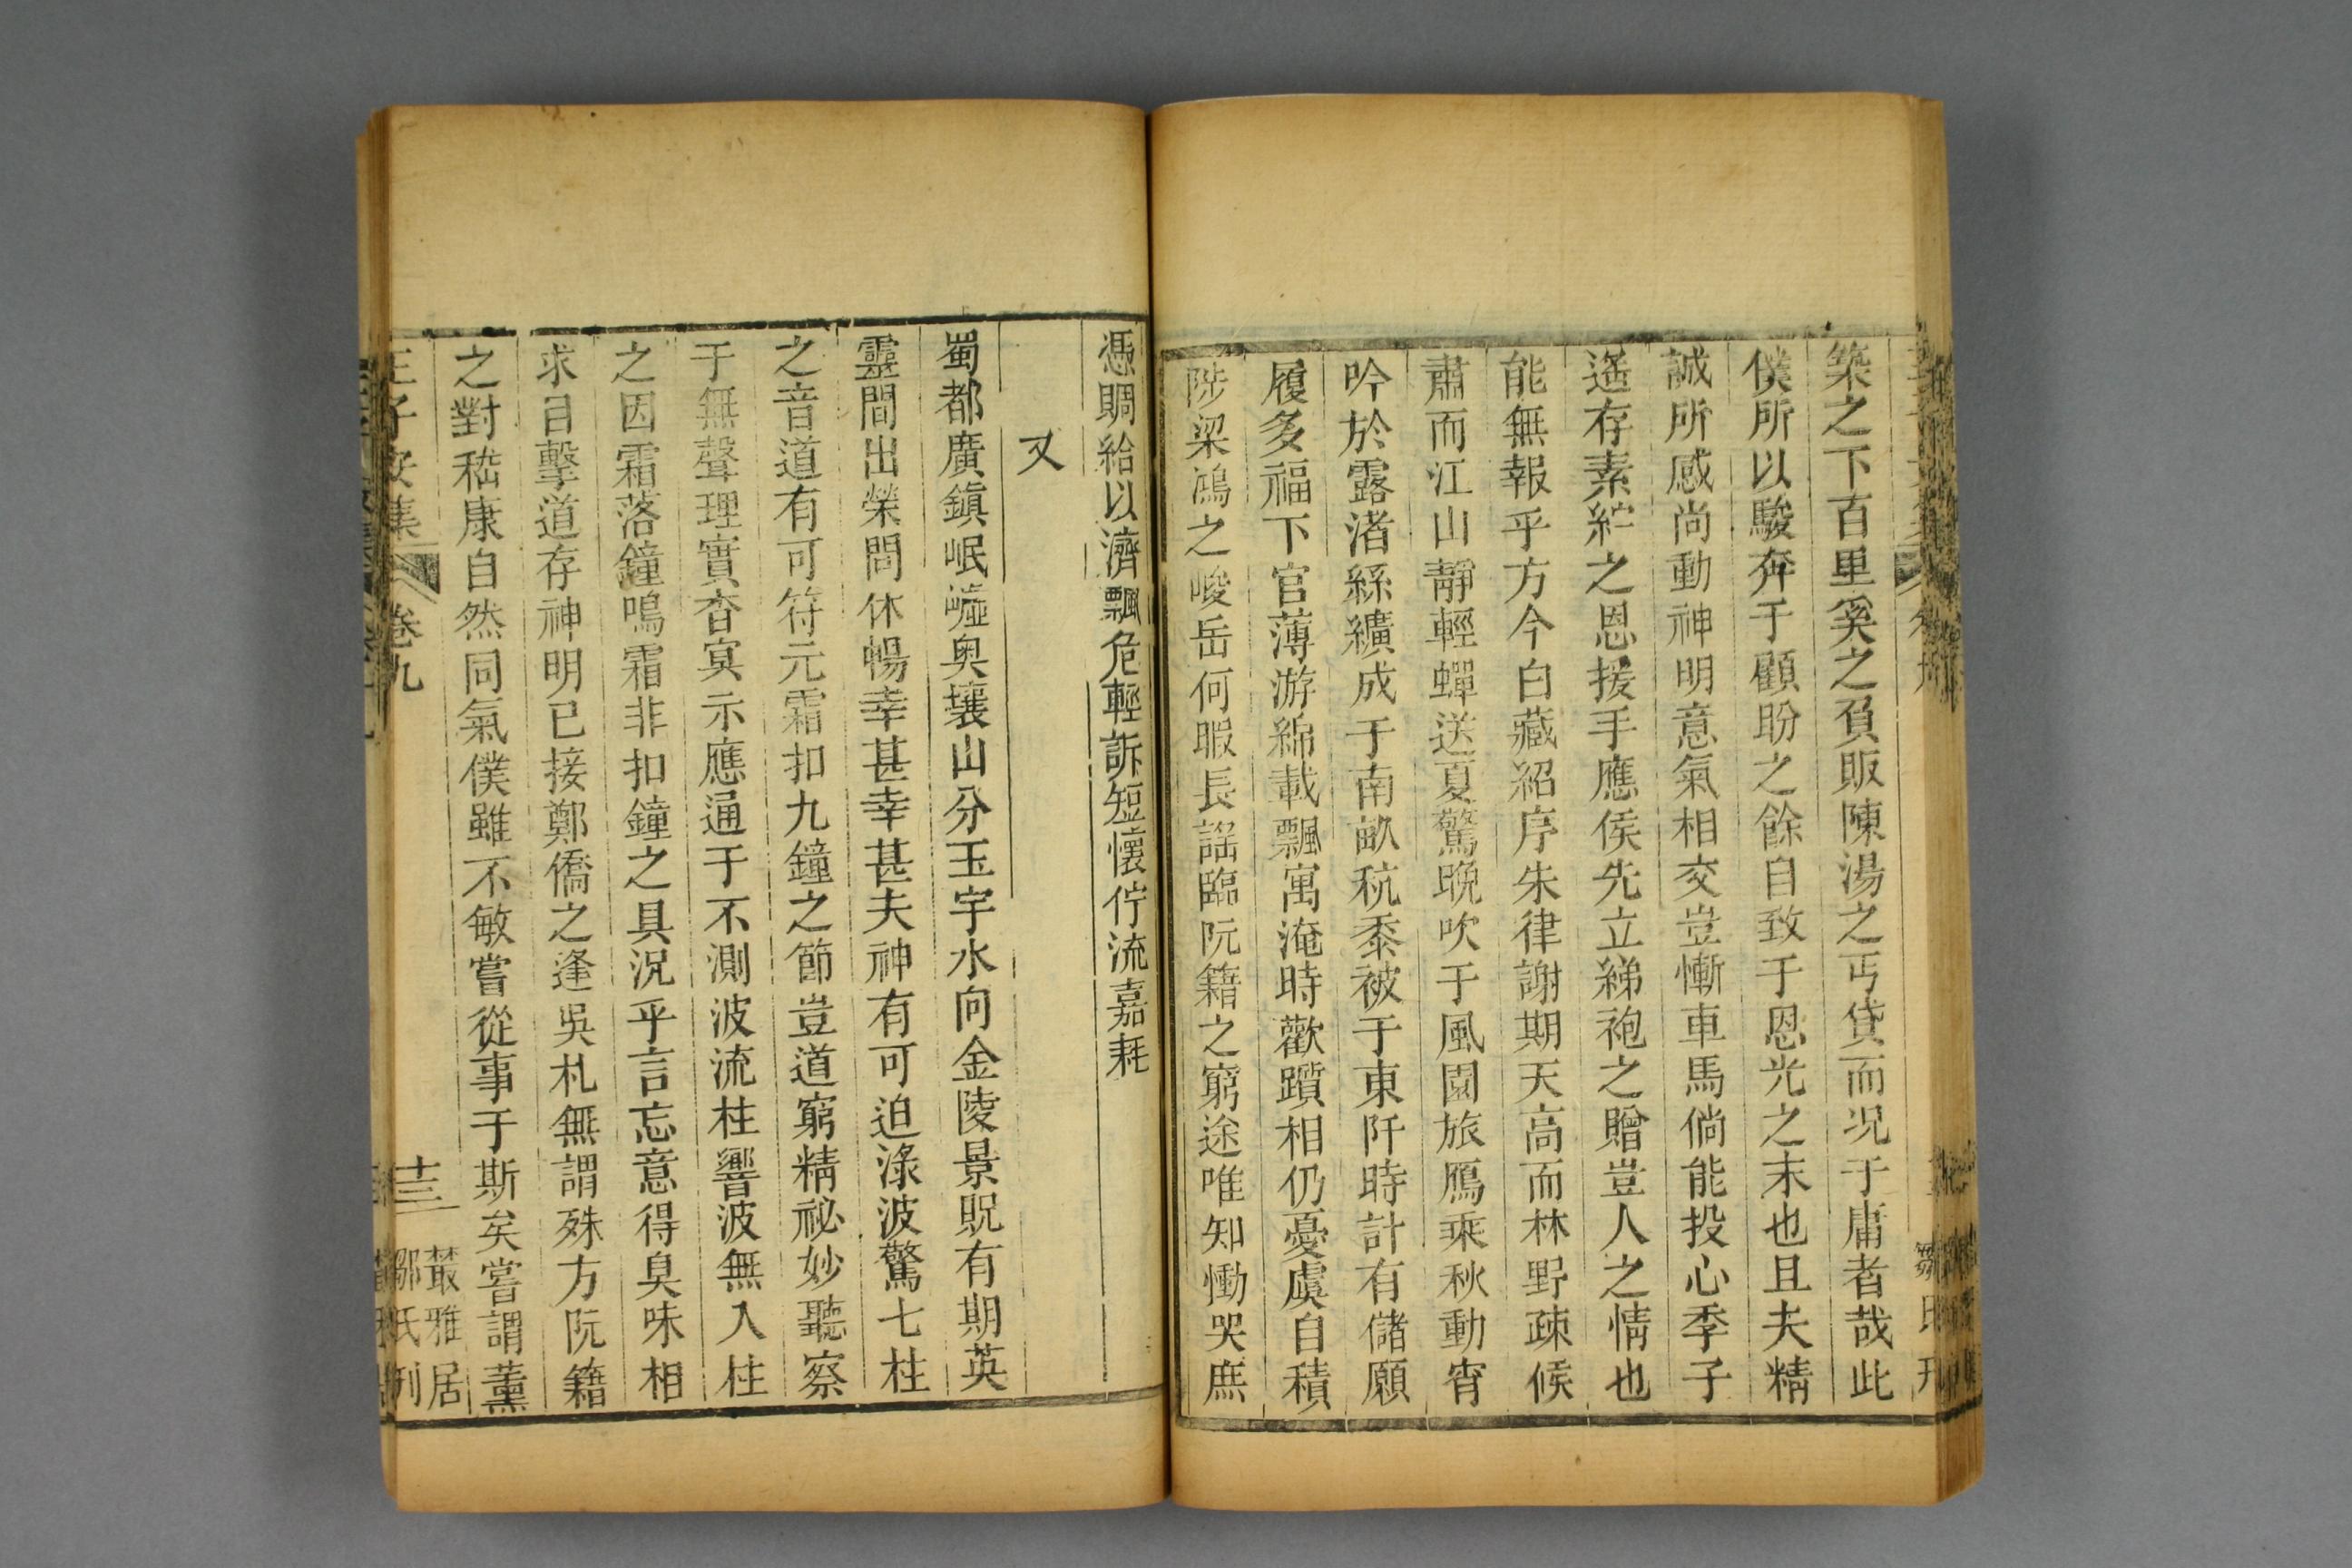 築之下百里奚之負販陳湯之丐貸而況于庸者哉此
僕所以駿奔于顧盼之餘自致于恩光之末也且夫精
誠所感尚動神明意氣相交豈慚車馬倘能投心季子
遙存素紵之恩援手應侯先立綈袍之贈豈人之情也
能無報乎方今白藏紹序朱律謝期天高而林野疎候
肅而江山靜輕蟬送夏驚晚吹于風園旅鴈乘秋動宵
吟於露渚絲纊成于南畝秔黍被于東阡時計有儲願
履多福下官薄游綿載飄寓淹時歡躓相仍憂虞自積
陟梁鴻之峻岳何暇長謠臨阮籍之窮途唯知慟哭庶
憑賙給以濟飄危輕訴短懷佇流嘉耗
又
蜀都廣鎮岷嶓奧壤山分玉宇水向金陵景貺有期英
靈間出榮問休暢幸甚幸甚夫神有可迫淥波驚七柱
之音道有可符元霜扣九鐘之節豈道窮精祕妙聽察
于無聲理實杳冥示應通于不測波流柱響波無入柱
之因霜落鐘鳴霜非扣鐘之具況乎言忘意得臭味相
求目擊道存神明已接鄭僑之逢吳札無謂殊方阮籍
之對嵇康自然同氣僕雖不敏嘗從事于斯矣嘗謂薰
王子安集 卷九 十三
叢雅居
鄒氏刊